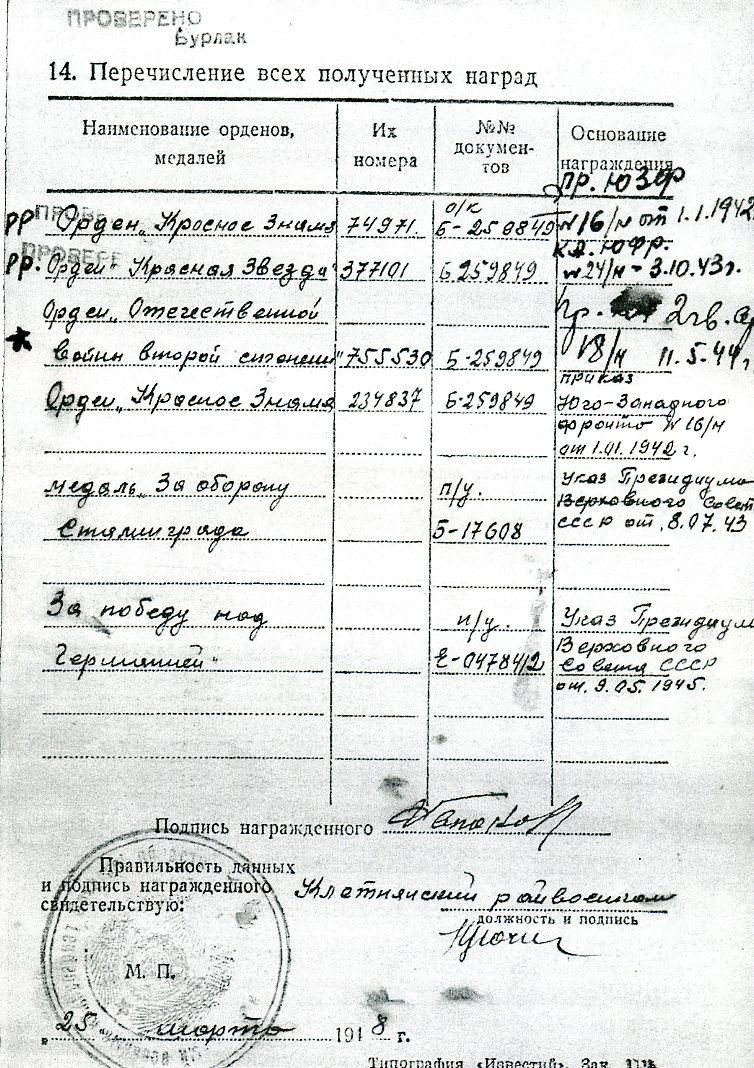 ПРОВЕРЕНО
Бурлак
14. Перечисление всех полученных наград
Наименование орденов, медалей
Их номера
№№ документов
Основание награждения
ПРОВЕ
ПРОВЕРЕ
пр. ЮЗФ
о/к
рр Орден „Красное Знамя 74971 Б-259849 №16/н от 1.1.1942
рр. Орден „Красная Звезда" 377101 Б259849 №24/н - 3.10.43г.
Орден „Отечественной
войны второй степени" 755530 Б-259849 18/н 11.5.44г
Орден „Красное Знамя 234837 Б-259849
приказ
Юго-Западного
фронта №16/н
от 1.01.1942 г.
медаль „За оборону п/у. Указ Президиума
Верховного Совет
Сталинграда Б-17608 СССР от 8.07.43
За победу над п/у. Указ Президиум
Верховного
Германией" Е-0478412 Совета СССР
от 9.05.1945.
Подпись награжденного
Правильность данных
и подпись награжденного
свидетельствую:
Клетнянский райвоенком
должность и подпись
М. П.
„ 25 марта 1948 г.
Типография «Известий». Зак.